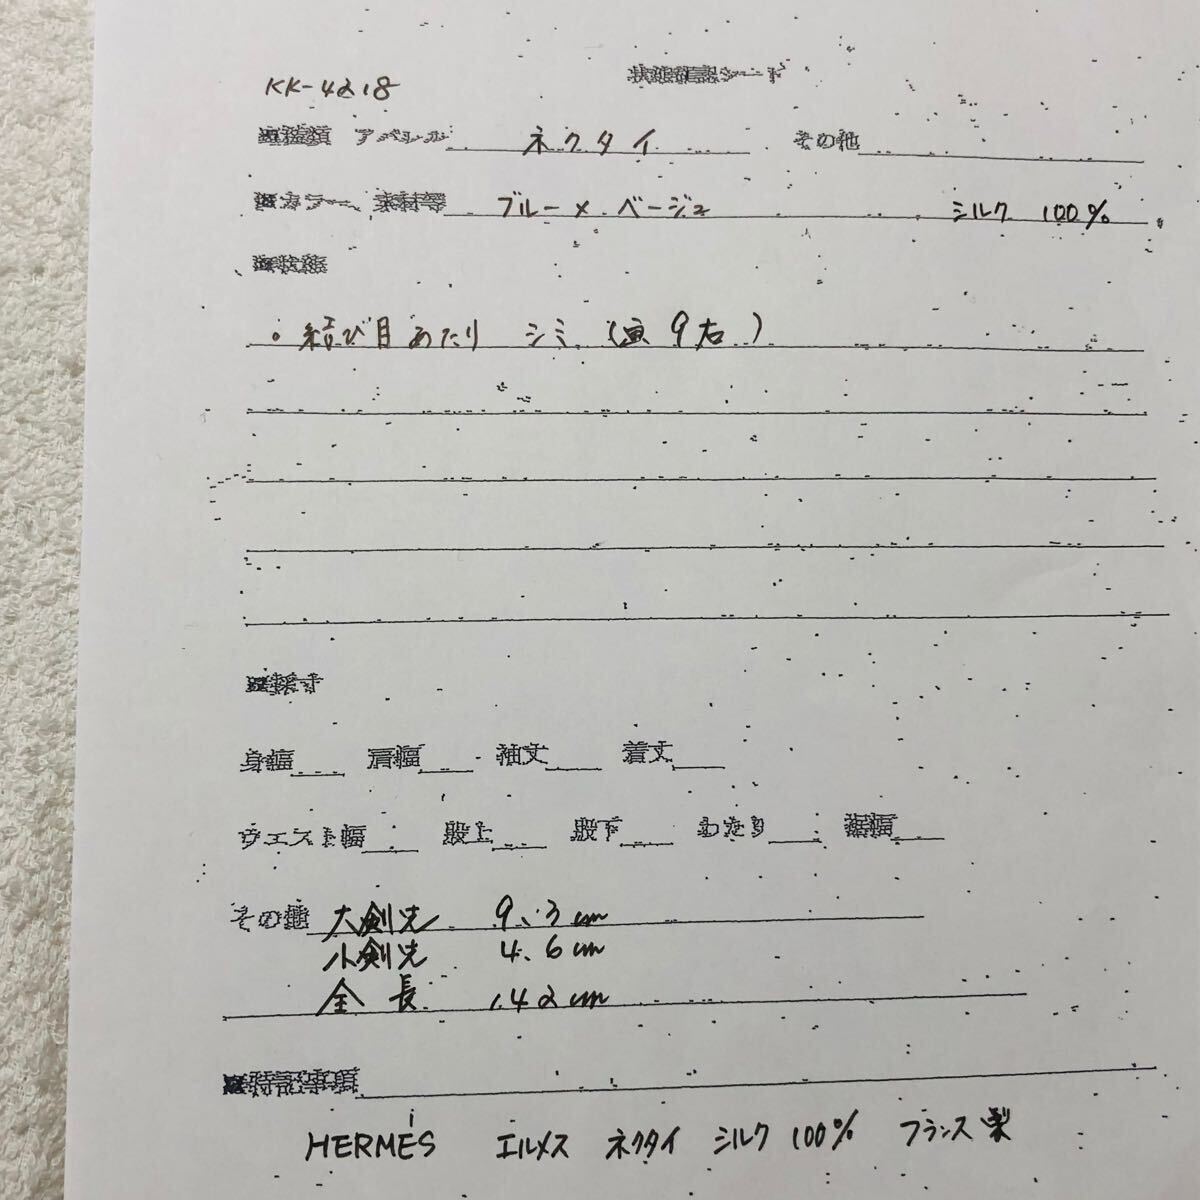 KK-4218
状態確認シート
■種類 アパレル ネクタイ その他
■カラー、素材等 ブルー × ベージュ シルク 100%
■状態
。結び目あたり シミ (画9右)
■採寸
身幅 肩幅 袖丈 着丈
ウエスト幅 股上 股下 わたり 裾幅
その他 大剣先 9.3cm
小剣先 4.6cm
全長 142cm
■特記事項
HERMES エルメス ネクタイ シルク 100% フランス製